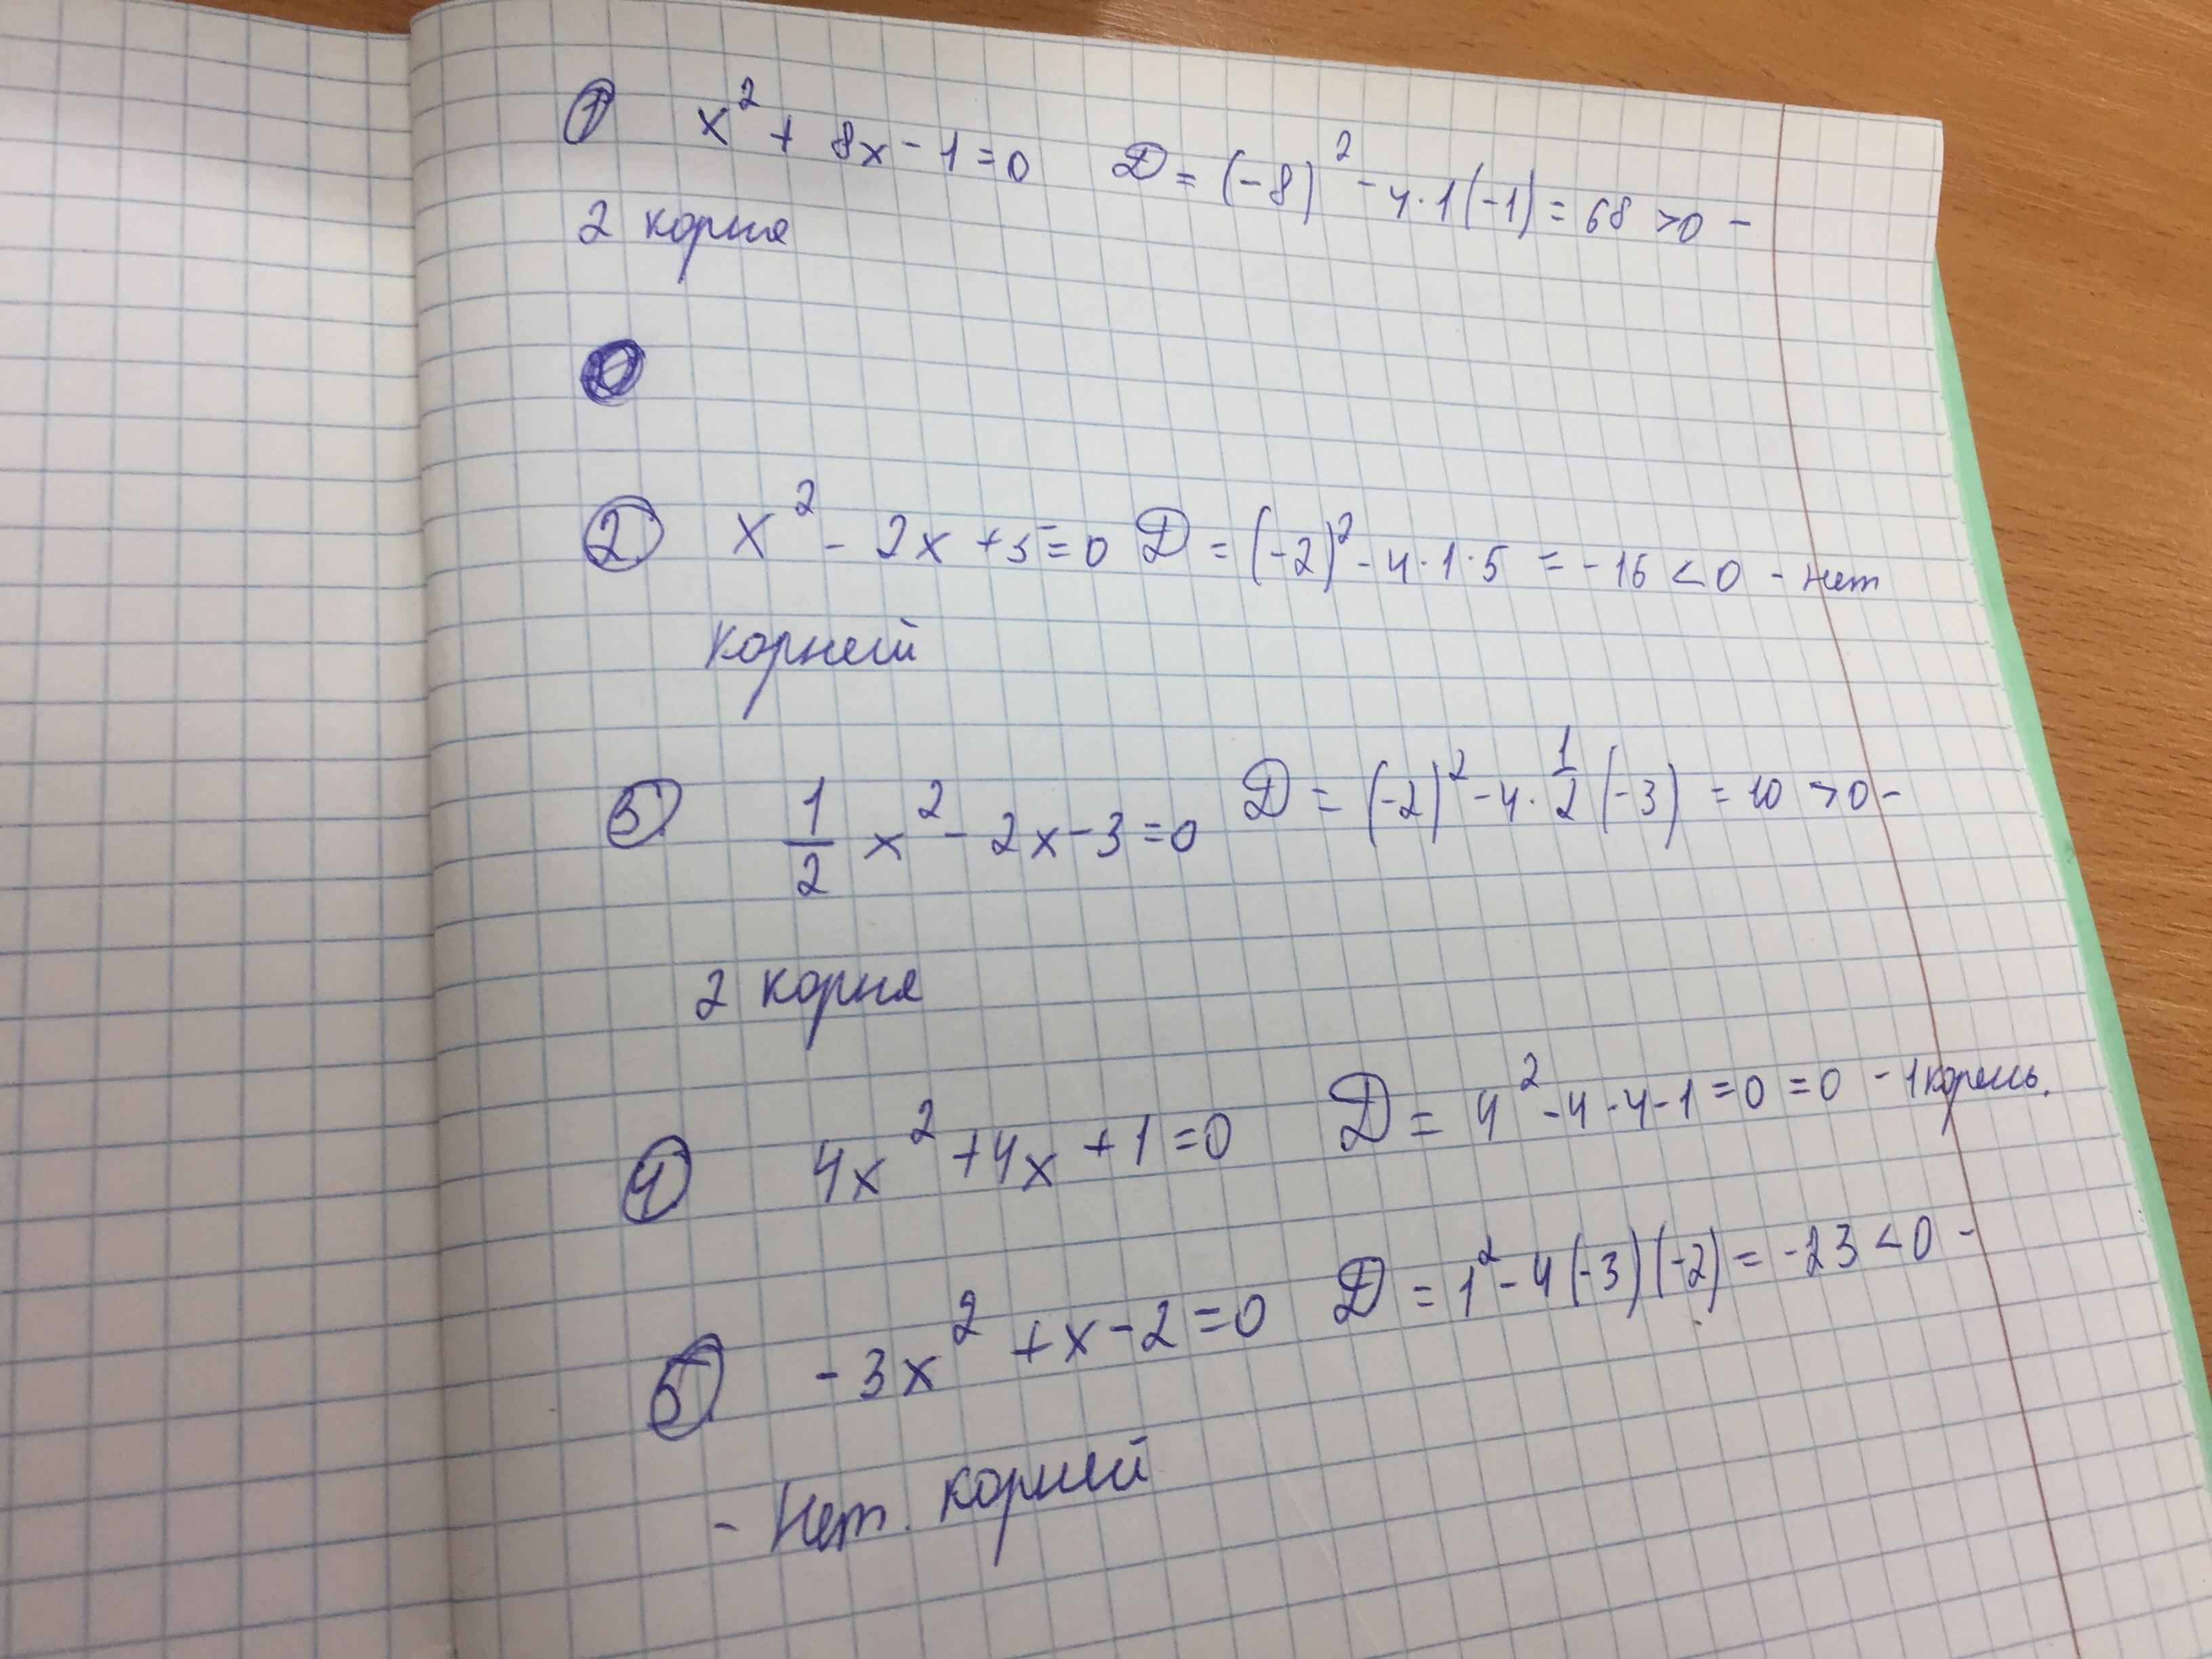 ① x² + 8x - 1 = 0 D = (-8)² - 4·1(-1) = 68 >0 -
2 корня
② x² - 2x + 5 = 0 D = (-2)² - 4·1·5 = -16 < 0 - нет
корней
3 1/2 x² - 2x - 3 = 0 D = (-2)² - 4·1/2 (-3) = 10 >0 -
2 корня
④ 4x² + 4x + 1 = 0 D = 4² - 4·4·1 = 0 = 0 - 1 корень.
⑤ -3x² + x - 2 = 0 D = 1² - 4(-3)(-2) = -23 < 0 -
- Нет. корней